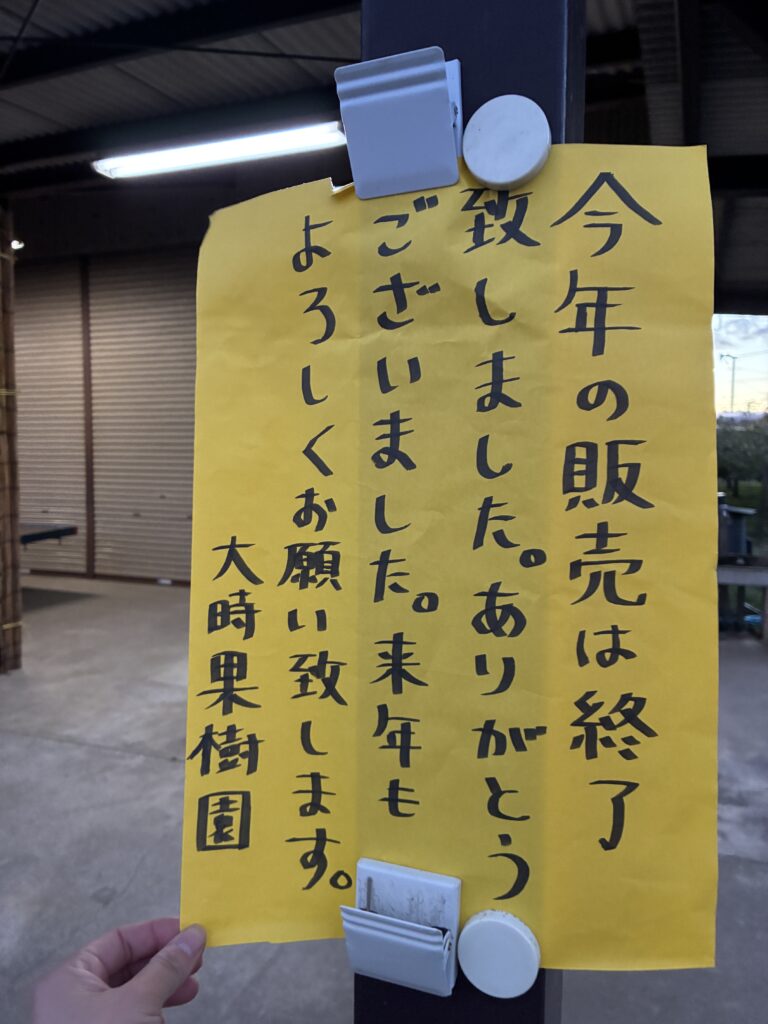 今年の販売は終了
致しました。ありがとう
ございました。来年も
よろしくお願い致します。
大時果樹園